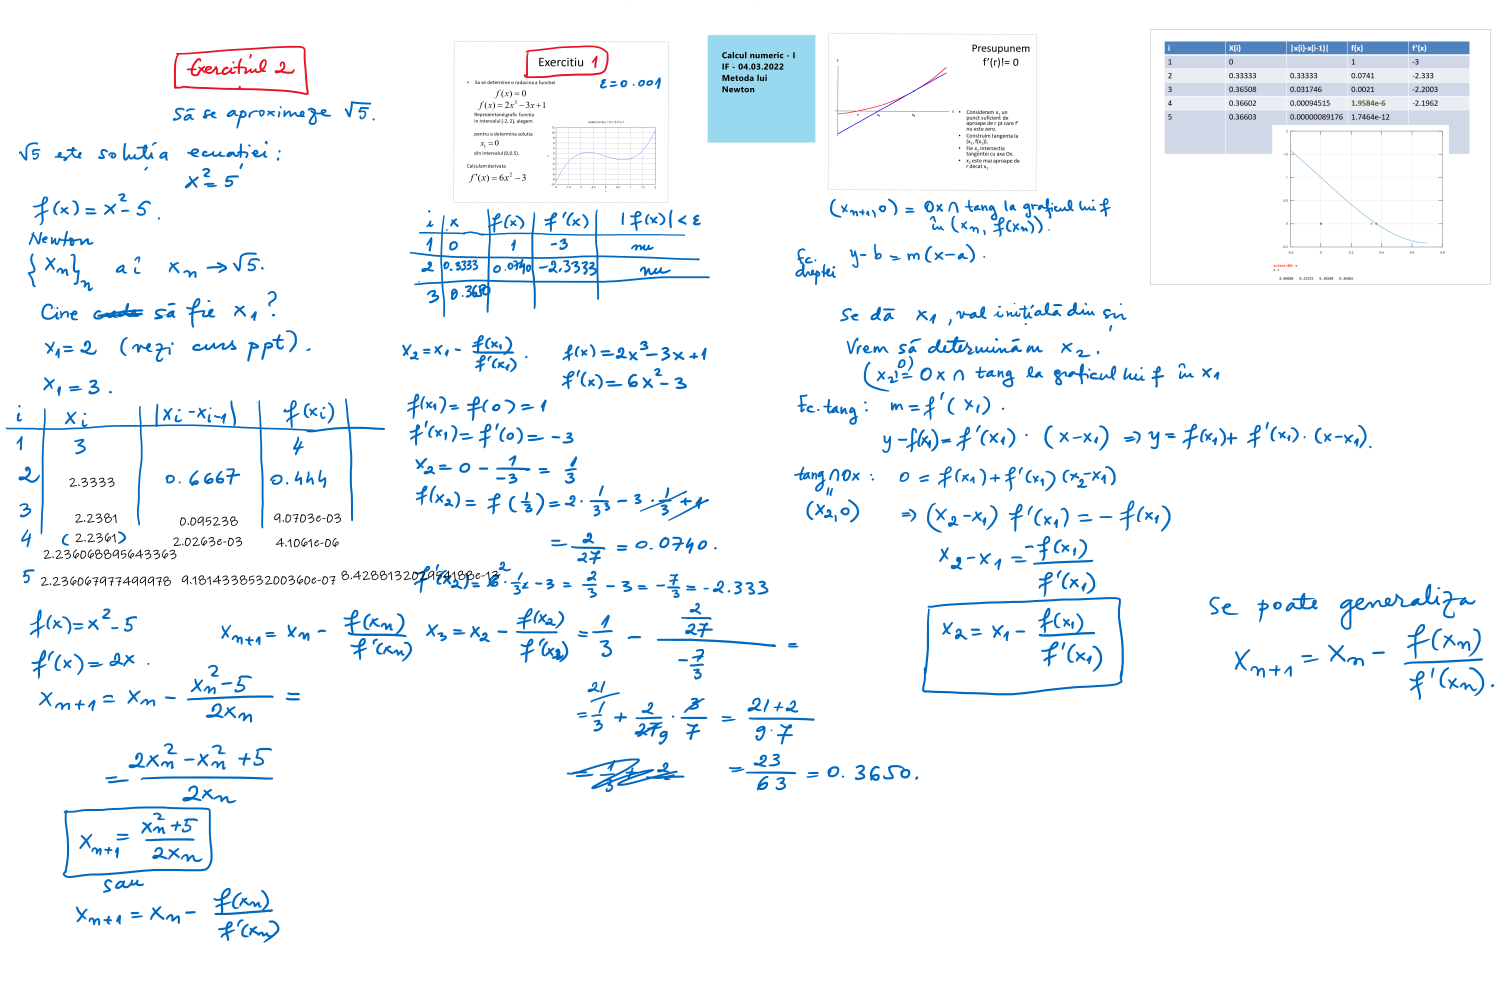 Exercitiul 2
Să se aproximeze √5.
√5 este soluția ecuației:
x² = 5
f(x) = x² - 5.
Newton
{x_n}_n aî x_n → √5.
Cine să fie x₁?
x₁ = 2 (vezi curs ppt).
x₁ = 3.
i | x_i | |x_i - x_{i-1}| | f(x_i)
1 | 3 | | 4
2 | 2.3333 | 0.6667 | 0.444
3 | 2.2381 | 0.095238 | 9.0703e-03
4 | (2.2361) | 2.0263e-03 | 4.1061e-06
2.236068895643363
5 | 2.236067977499978 | 9.181433853200360e-07
f(x) = x² - 5
f'(x) = 2x.
x_{n+1} = x_n - f(x_n)/f'(x_n)
x_{n+1} = x_n - (x_n² - 5)/(2x_n) =
= (2x_n² - x_n² + 5)/(2x_n)
x_{n+1} = (x_n² + 5)/(2x_n)
sau
x_{n+1} = x_n - f(x_n)/f'(x_n)
Exercitiu 1
ε = 0.001
• Sa se determine o radacina a functiei
f(x) = 0
f(x) = 2x³ - 3x + 1
Reprezentand grafic functia
in intervalul [-2, 2], alegem
pentru a determina solutia
x₁ = 0
din intervalul (0,0.5).
Calculam derivata
f'(x) = 6x² - 3
i | x | f(x) | f'(x) | |f(x)| < ε
1 | 0 | 1 | -3 | nu
2 | 0.3333 | 0.0740 | -2.3333 | nu
3 | 0.3650
x₂ = x₁ - f(x₁)/f'(x₁).
f(x) = 2x³ - 3x + 1
f'(x) = 6x² - 3
f(x₁) = f(0) = 1
f'(x₁) = f'(0) = -3
x₂ = 0 - 1/(-3) = 1/3
f(x₂) = f(1/3) = 2 · 1/3³ - 3 · 1/3 + 1
= 2/27 = 0.0740.
f'(x₂) = 6 · 1/3² - 3 = 2/3 - 3 = -7/3 = -2.333
x₃ = x₂ - f(x₂)/f'(x₂) = 1/3 - (2/27)/(-7/3) =
= 1/3 + 2/27 · 3/7 = (21+2)/(9·7)
= 23/63 = 0.3650.
Calcul numeric - I
IF - 04.03.2022
Metoda lui
Newton
Presupunem
f'(r)!= 0
• Consideram x₁ un
punct suficient de
aproape de r pt care f'
nu este zero.
• Construim tangenta la
(x₁, f(x₁)).
• Fie x₂ intersectia
tangentei cu axa Ox.
• x₂ este mai aproape de
r decat x₁
(x_{n+1}, 0) = Ox ∩ tang la graficul lui f
în (x_n, f(x_n)).
Ec. dreptei
y - b = m(x - a).
Se dă x₁, val inițială din șir
Vrem să determinăm x₂.
(x₂, 0) = Ox ∩ tang la graficul lui f în x₁
Ec. tang: m = f'(x₁).
y - f(x₁) = f'(x₁) · (x - x₁) ⇒ y = f(x₁) + f'(x₁) · (x - x₁).
tang ∩ Ox: 0 = f(x₁) + f'(x₁)(x₂ - x₁)
=
(x₂, 0) ⇒ (x₂ - x₁) f'(x₁) = - f(x₁)
x₂ - x₁ = -f(x₁)/f'(x₁)
x₂ = x₁ - f(x₁)/f'(x₁)
i | X(i) | |x(i)-x(i-1)| | f(x) | f'(x)
1 | 0 | | 1 | -3
2 | 0.33333 | 0.33333 | 0.0741 | -2.333
3 | 0.36508 | 0.031746 | 0.0021 | -2.2003
4 | 0.36602 | 0.00094515 | 1.9584e-6 | -2.1962
5 | 0.36603 | 0.00000089176 | 1.7464e-12
Se poate generaliza
x_{n+1} = x_n - f(x_n)/f'(x_n).